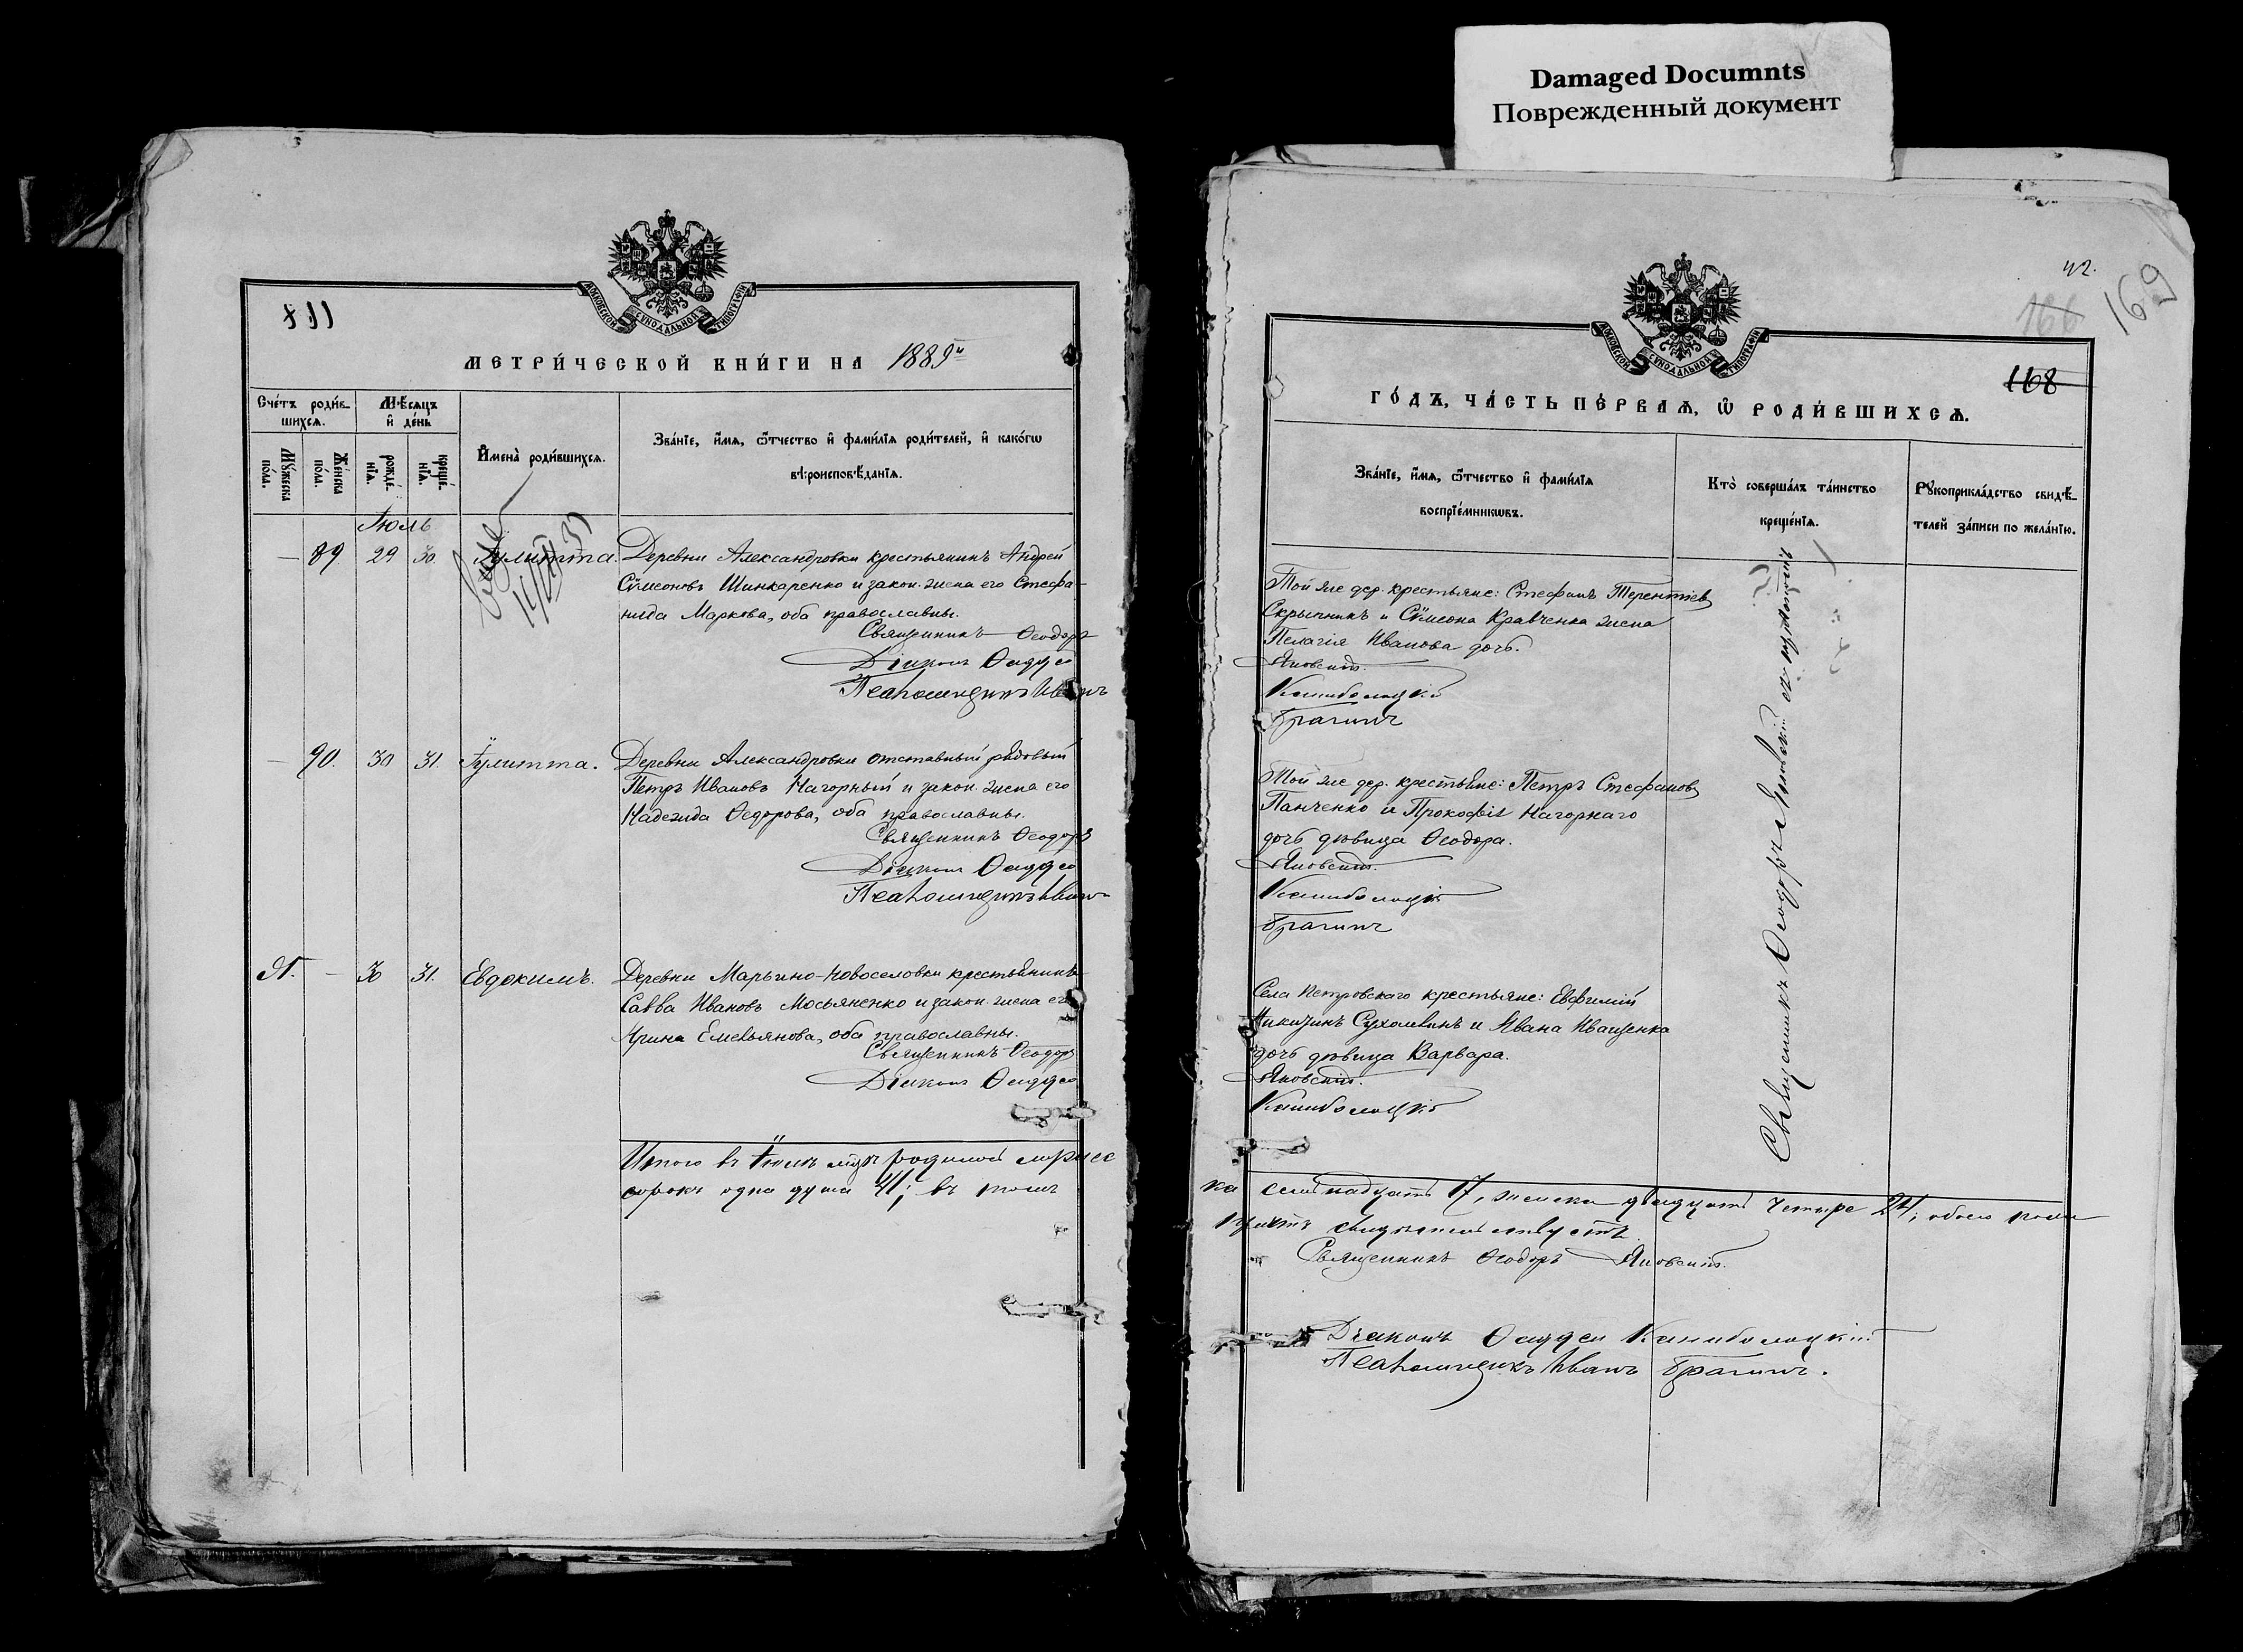 Damaged Documnts
Поврежденный документ
МОСКОВСКОЙ СѴНОДАЛЬНОЙ ТИПОГРАФІИ
МЕТРИ́ЧЕСКОЙ КНИ́ГИ НА 1889й
Сче́тъ роди́в-
шихсѧ.
Мꙋ́жеска
по́ла.
Же́нска
по́ла.
Мѣ́сѧцъ
и҆ де́нь
рожде́-
нїѧ.
креще́-
нїѧ.
И҆мена̀ роди́вшихсѧ.
Зва́нїе, и҆́мѧ, ѻ҆́тчество и҆ фами́лїѧ роди́телей, и҆ како́гѡ
вѣроисповѣ́данїѧ.
Іюль
— 89 29 30. Іулитта. Деревни Александровки крестьянинъ Андрей
Сѵмеоновъ Шинкаренко и закон. жена его Стефа-
нида Маркова, оба православны.
Священникъ Ѳеодоръ
Діаконъ Ѳаддей
Псаломщикъ Иванъ
— 90. 30 31. Іулитта. Деревни Александровки отставный рядовый
Петръ Ивановъ Нагорный и закон. жена его
Надежда Ѳедорова, оба православны.
Священникъ Ѳеодоръ
Діаконъ Ѳаддей
Псаломщикъ Иванъ
— 30 31. Евдокимъ. Деревни Марьино-Новоселовки крестьянинъ
Савва Ивановъ Мосьяненко и закон. жена его
Ирина Емельянова, оба православны.
Священникъ Ѳеодоръ
Діаконъ Ѳаддей
Итого въ Іюлѣ родилось мужес
сорокъ одна душа 41; въ томъ
42.
166
169
168
МОСКОВСКОЙ СѴНОДАЛЬНОЙ ТИПОГРАФІИ
ГО́ДЪ, ЧА́СТЬ ПЕ́РВАѦ, Ѡ҆ РОДИ́ВШИХСѦ.
Зва́нїе, и҆́мѧ, ѻ҆́тчество и҆ фами́лїѧ
воспрїе́мникѡвъ.
Кто̀ соверша́лъ та́инство
креще́нїѧ.
Рꙋкоприкла́дство свидѣ́-
телей за́писи по жела́нїю.
Той же дер. крестьяне: Стефанъ Терентіевъ
Скрыпникъ и Сѵмеона Кравченка жена
Пелагія Иванова дочь.
Яновскій.
Канибалоцкій
Брагинъ
Той же дер. крестьяне: Петръ Стефановъ
Панченко и Прокофія Нагорнаго
дочь дѣвица Ѳеодора.
Яновскій.
Канибалоцкій
Брагинъ
Села Петровскаго крестьяне: Евфимій
Никитинъ Сухомлинъ и Ивана Иващенка
дочь дѣвица Варвара.
Яновскій.
Канибалоцкій
Священникъ Ѳеодоръ Яновскій
ка семнадцать 17, женска двадцать четыре 24; обоего пола
свидѣтельствуетъ
Священникъ Ѳеодоръ Яновскій.
Діаконъ Ѳаддей Канибалоцкій
Псаломщикъ Иванъ Брагинъ.